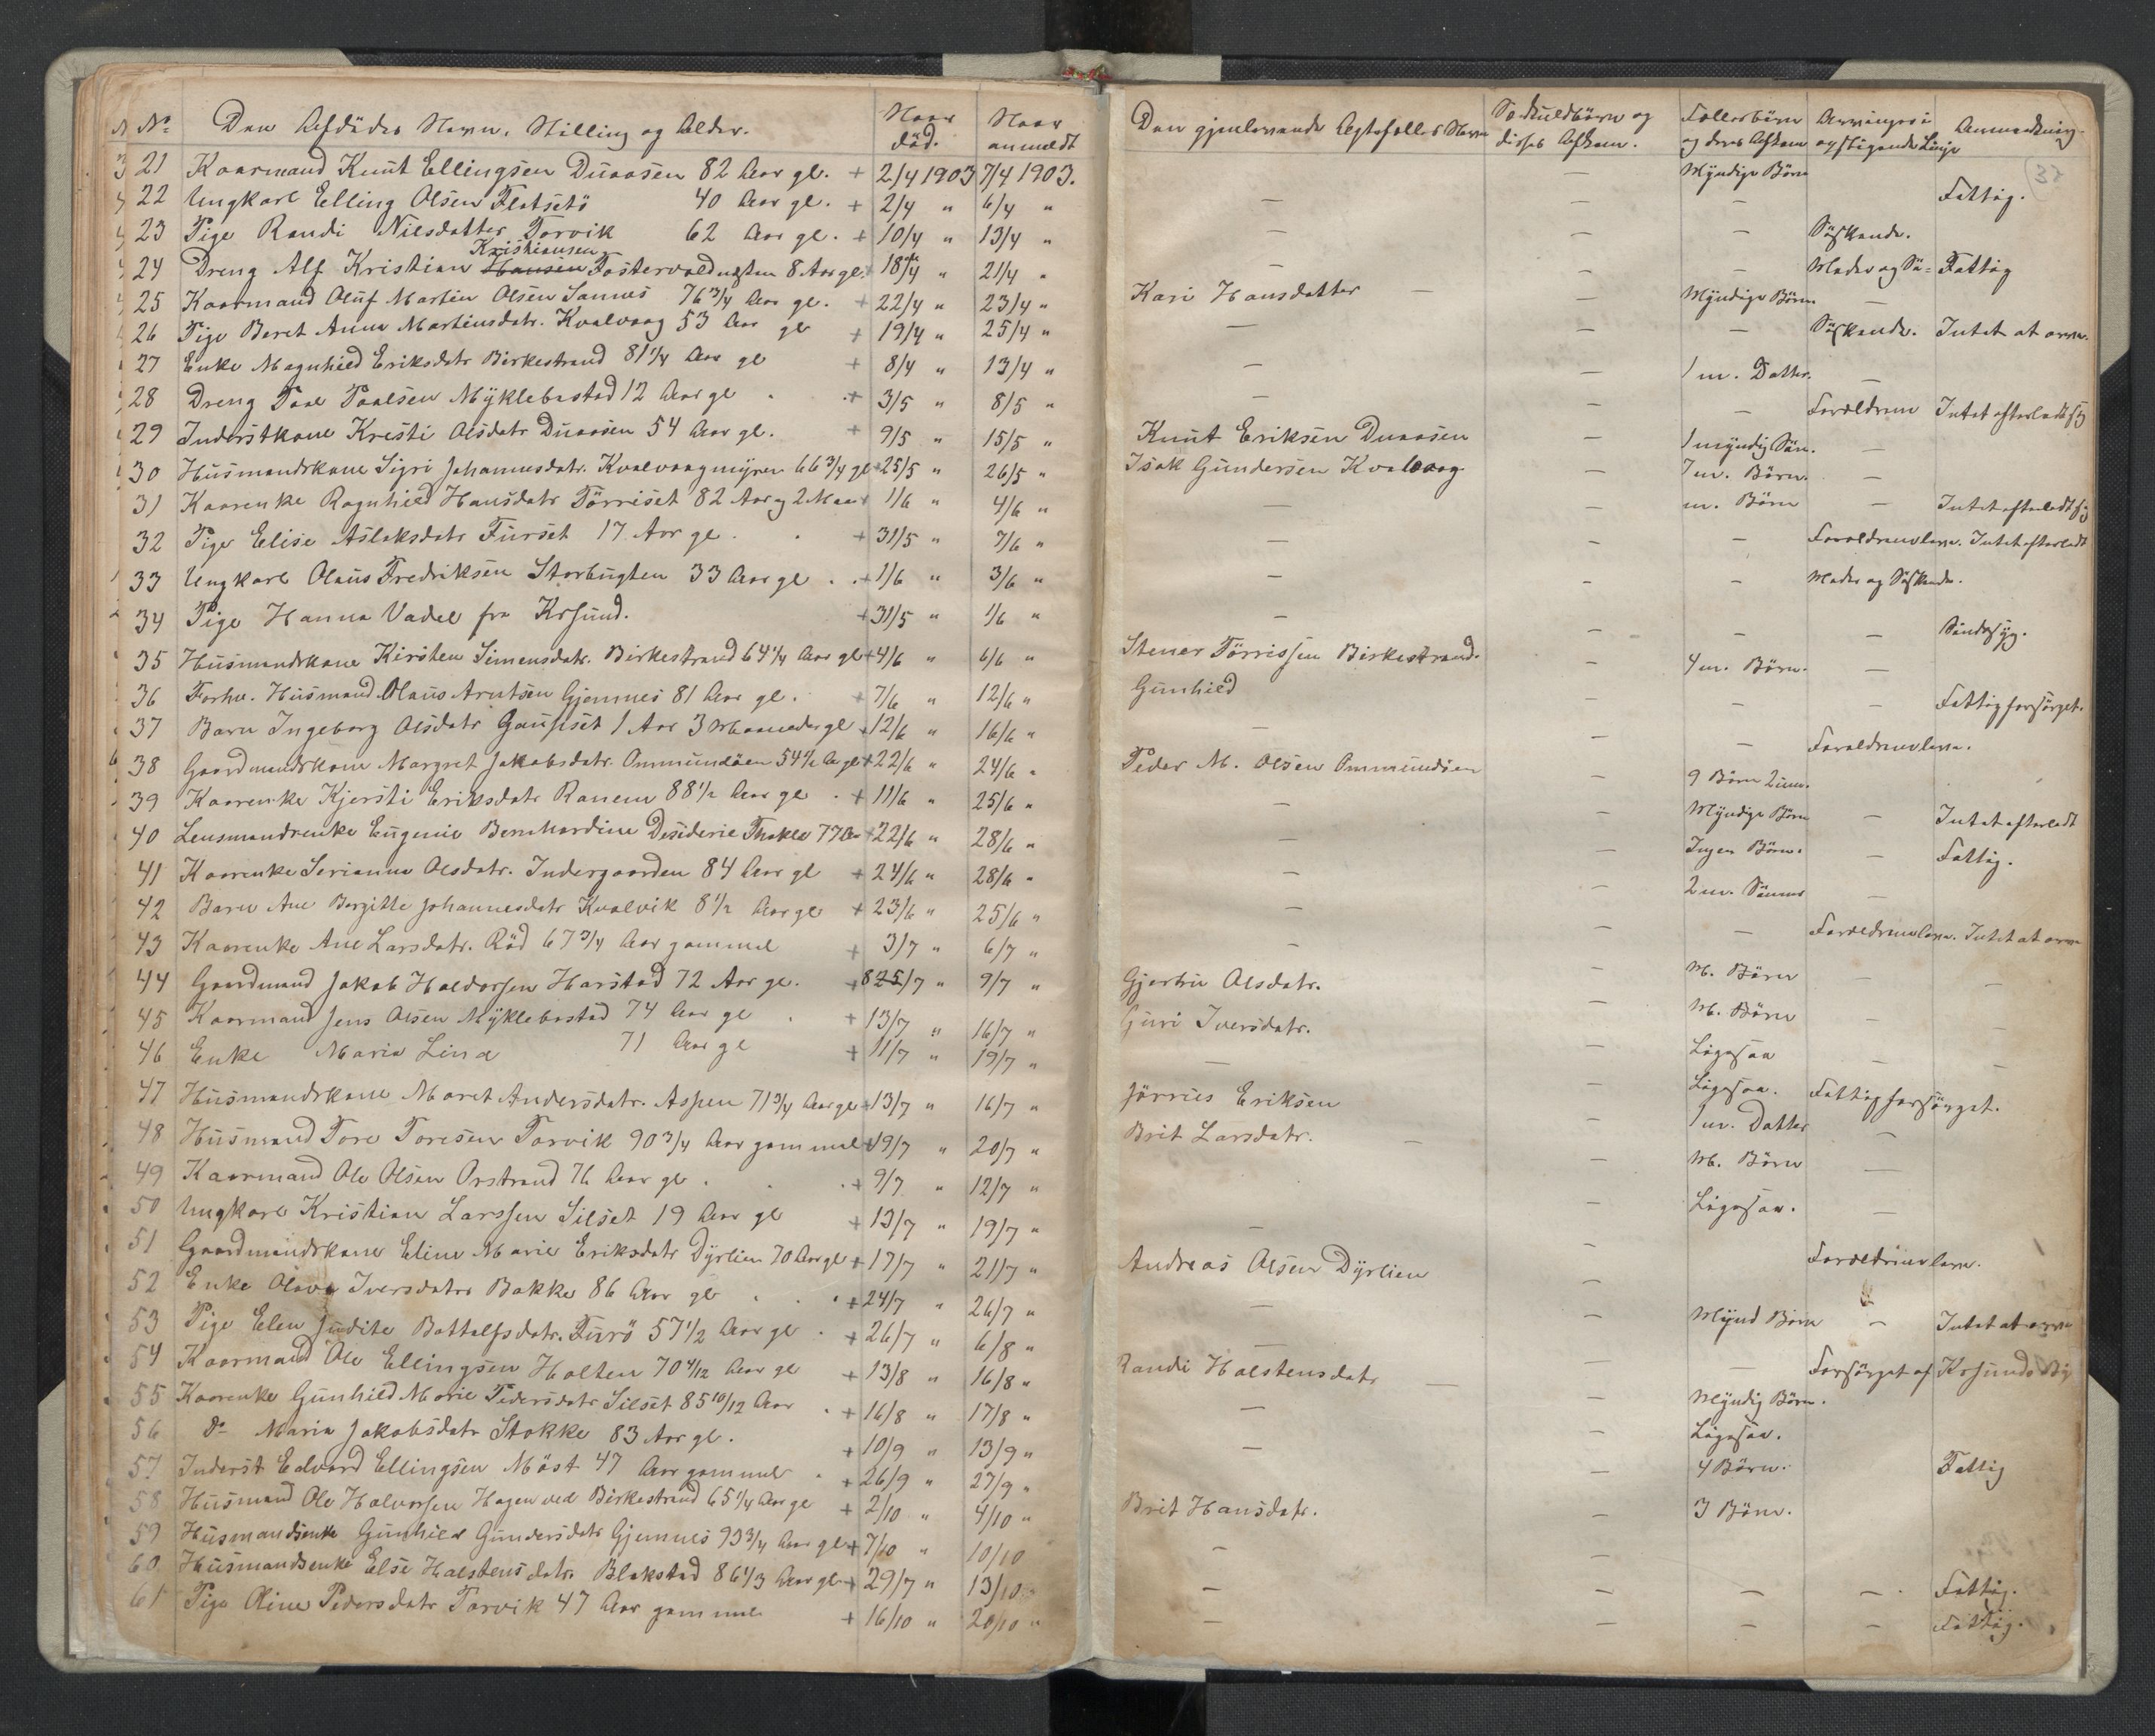 No Den Afdødes Navn, Stilling og Alder. Naar død. Naar anmeldt Den gjenlevende Ægtefælles Navn Særkuldbørn og disses Afkom. Fællesbørn og deres Afkom Arvinger i opstigende Linje Anmærkning.
21 Kaarmand Knut Ellingsen Duaasen 82 Aar gl. + 2/4 1903 7/4 1903. — Myndige Børn
22 Ungkarl Elling Olsen Flatsetø 40 Aar gl. + 2/4 " 6/4 " — — — Fattig.
23 Pige Randi Nilsdatter Torvik 62 Aar gl. + 10/4 " 13/4 " — — — Søskende.
24 Dreng Alf Kristian Hansen Kristiansen Fostervold 8 Aar gl. + 18/4 " 21/4 " — — Moder og Sø= Fattig
25 Kaarmand Oluf Martin Olsen Sannes 76 3/4 Aar gl. + 22/4 " 23/4 " Kari Hansdatter — — Myndige Børn —
26 Pige Beret Anna Martinsdatr. Kvalvaag 53 Aar gl + 19/4 " 25/4 " — — — Søskende. Intet at arve.
27 Enke Magnhild Eriksdatr Birkestrand 81 1/4 Aar gl + 8/4 " 13/4 " — — 1 m. Datter. —
28 Dreng Paal Paalsen Myklebostad 12 Aar gl + 3/5 " 8/5 " — — — Forældrene Intet efterladt sig
29 Inderstkone Kristi Olsdatr Duaasen 54 Aar gl. + 9/5 " 15/5 " Knut Eriksen Duaasen — 1 myndig Søn. —
30 Husmandskone Sigri Johannesdatr. Kvalvaagmyren 66 3/4 gl + 25/5 " 26/5 " Isak Gundersen Kvalvaag — 7 m. Børn. —
31 Kaarenke Ragnhild Hansdatr Tørriset 82 Aar og 2 Maa + 1/6 " 4/6 " — — m. Børn — Intet efterladt sig
32 Pige Elise Aslaksdatr Furset 17 Aar gl. + 31/5 " 7/6 " — — — Forældrene leve. Intet efterladt
33 Ungkarl Olaus Fredriksen Storbugten 33 Aar gl + 1/6 " 3/6 " — — — Moder og Søskende.
34 Pige Hanna Vadel fra Krsund. + 31/5 " 1/6 " — — — — Sindssyg.
35 Husmandskone Kirsten Simensdatr. Birkestrand 64 1/4 Aar gl + 4/6 " 6/6 " Stener Tørrissen Birkestrand. — 4 m. Børn. —
36 Forhv. Husmand Olaus Arntsen Gjemnes 81 Aar gl. + 7/6 " 12/6 " Gunhild — — — Fattigforsørget.
37 Barn Ingeborg Olsdatr Gaupset 1 Aar 3 Maaneder gl + 12/6 " 16/6 " — — — Forældrene leve.
38 Gaardmandskone Margret Jakobsdatr. Ommundøen 54 1/2 Aar gl + 22/6 " 24/6 " Peder M. Olsen Ommundøen — 9 Børn 2 um.
39 Kaarenke Kjersti Eriksdatr Ranem 88 1/2 Aar gl + 11/6 " 25/6 " — Myndige Børn — Intet efterladt
40 Lensmandsenke Eugenie Bernhardine Desiderie Thekla 77 Aar + 22/6 " 28/6 " — — Ingen Børn. — Fattig.
41 Kaarenke Serianna Olsdatr. Indergaarden 84 Aar gl + 24/6 " 28/6 " — — 2 m. Sønner —
42 Barn Ane Bergitte Johannesdatr Kvalvik 8 1/2 Aar gl + 23/6 " 25/6 " — — — Forældrene leve. Intet at arve
43 Kaarenke Ane Larsdatr. Rød 67 3/4 Aar gammel + 3/7 " 6/7 " — — M. Børn — —
44 Gaardmand Jakob Haldorsen Harstad 72 Aar gl. + 8 25/7 " 9/7 " Gjertru Olsdatr. — M. Børn — —
45 Kaarmand Jens Olsen Myklebostad 74 Aar gl + 13/7 " 16/7 " Guri Iversdatr. — Ligesaa — —
46 Enke Maria Lind 71 Aar gl + 11/7 " 19/7 " — — Ligesaa. Fattigforsørget.
47 Husmandskone Maret Andersdatr. Aspen 71 3/4 Aar gl + 13/7 " 16/7 " Jørnus Eriksen — 1 m. Datter —
48 Husmand Tore Toresen Torvik 90 3/4 Aar gammel + 19/7 " 20/7 " Brit Larsdatr. — — M. Børn —
49 Kaarmand Ole Olsen Orstrand 76 Aar gl. + 9/7 " 12/7 " — Ligesaa. —
50 Ungkarl Kristian Larssen Silset 19 Aar gl + 13/7 " 19/7 " — — Forældrene leve.
51 Gaardmandskone Eline Marie Eriksdatr Dyrlien 70 Aar gl + 17/7 " 21/7 " Andreas Olsen Dyrlien — Mynd Børn — Intet at arve
52 Enke Olava Iversdatr Bakke 86 Aar gl + 24/7 " 26/7 " —
53 Pige Elen Judite Battalfsdatr. Furø 57 1/2 Aar gl. + 26/7 " 6/8 " — — Forsørget af Krsunds By
54 Kaarmand Ole Ellingsen Holten 70 4/12 Aar gl + 13/8 " 16/8 " Randi Halstensdatr — Myndig Børn.
55 Kaarenke Gunhild Marie Pedersdatr Silset 85 10/12 Aar + 16/8 " 17/8 " — Ligesaa.
56 Do Maria Jakobsdatr Stokke 83 Aar gl. + 10/9 " 13/9 " — — 4 Børn. Fattig
57 Inderst Edvard Ellingsen Møst 47 Aar gammel + 26/9 " 27/9 "
58 Husmand Ole Halvorsen Hagen ved Birkestrand 65 1/4 Aar gl + 2/10 " 4/10 " Brit Hansdatr. — 3 Børn.
59 Husmandsenke Gunhild Gundersdatr Gjemnes 93 3/4 Aar gl + 7/10 " 10/10 — —
60 Husmandsenke Else Halstensdatr. Blakstad 86 1/3 Aar gl + 29/7 " 13/10 " — — — — Fattig.
61 Pige Oline Pedersdatr Torvik 47 Aar gammel + 16/10 " 20/10 " — — — — Fattig.